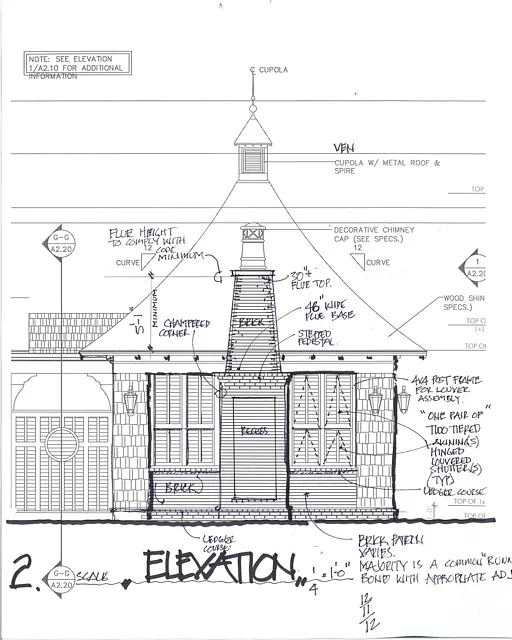 NOTE: SEE ELEVATION
1/A2.10 FOR ADDITIONAL
INFORMATION
C CUPOLA
VEN
CUPOLA W/ METAL ROOF &
SPIRE
TOP
G-G
A2.20
FLUE HEIGHT
TO COMPLY WITH
CODE
MINIMUM
DECORATIVE CHIMNEY
CAP (SEE SPECS.)
12
CURVE
12
CURVE
1
A2.20
30"±
FLUE TOP.
48" WIDE
FLUE BASE
WOOD SHIN
SPECS.)
5'-1"
MINIMUM
CHAMFERED
CORNER
BRICK
STEPPED
PEDESTAL
TOP O
TOP OF
4x4 POST FRAME
FOR LOUVER
ASSEMBLY.
"ONE PAIR OF"
TWO TIERED
AWNING(S)
HINGED
LOUVERED
SHUTTER(S)
(TYP)
RECESS
BRICK
LEDGER COURSE
TOP OF 1s
TOP OF
LEDGER
COURSE
BRICK PATERN
VARIES.
MAJORITY IS A COMMON "RUNN
BOND WITH APPROPRIATE ADJ
2.
G-G
A2.20
SCALE
"ELEVATION"
1/4" = 1'-0"
12
11
12